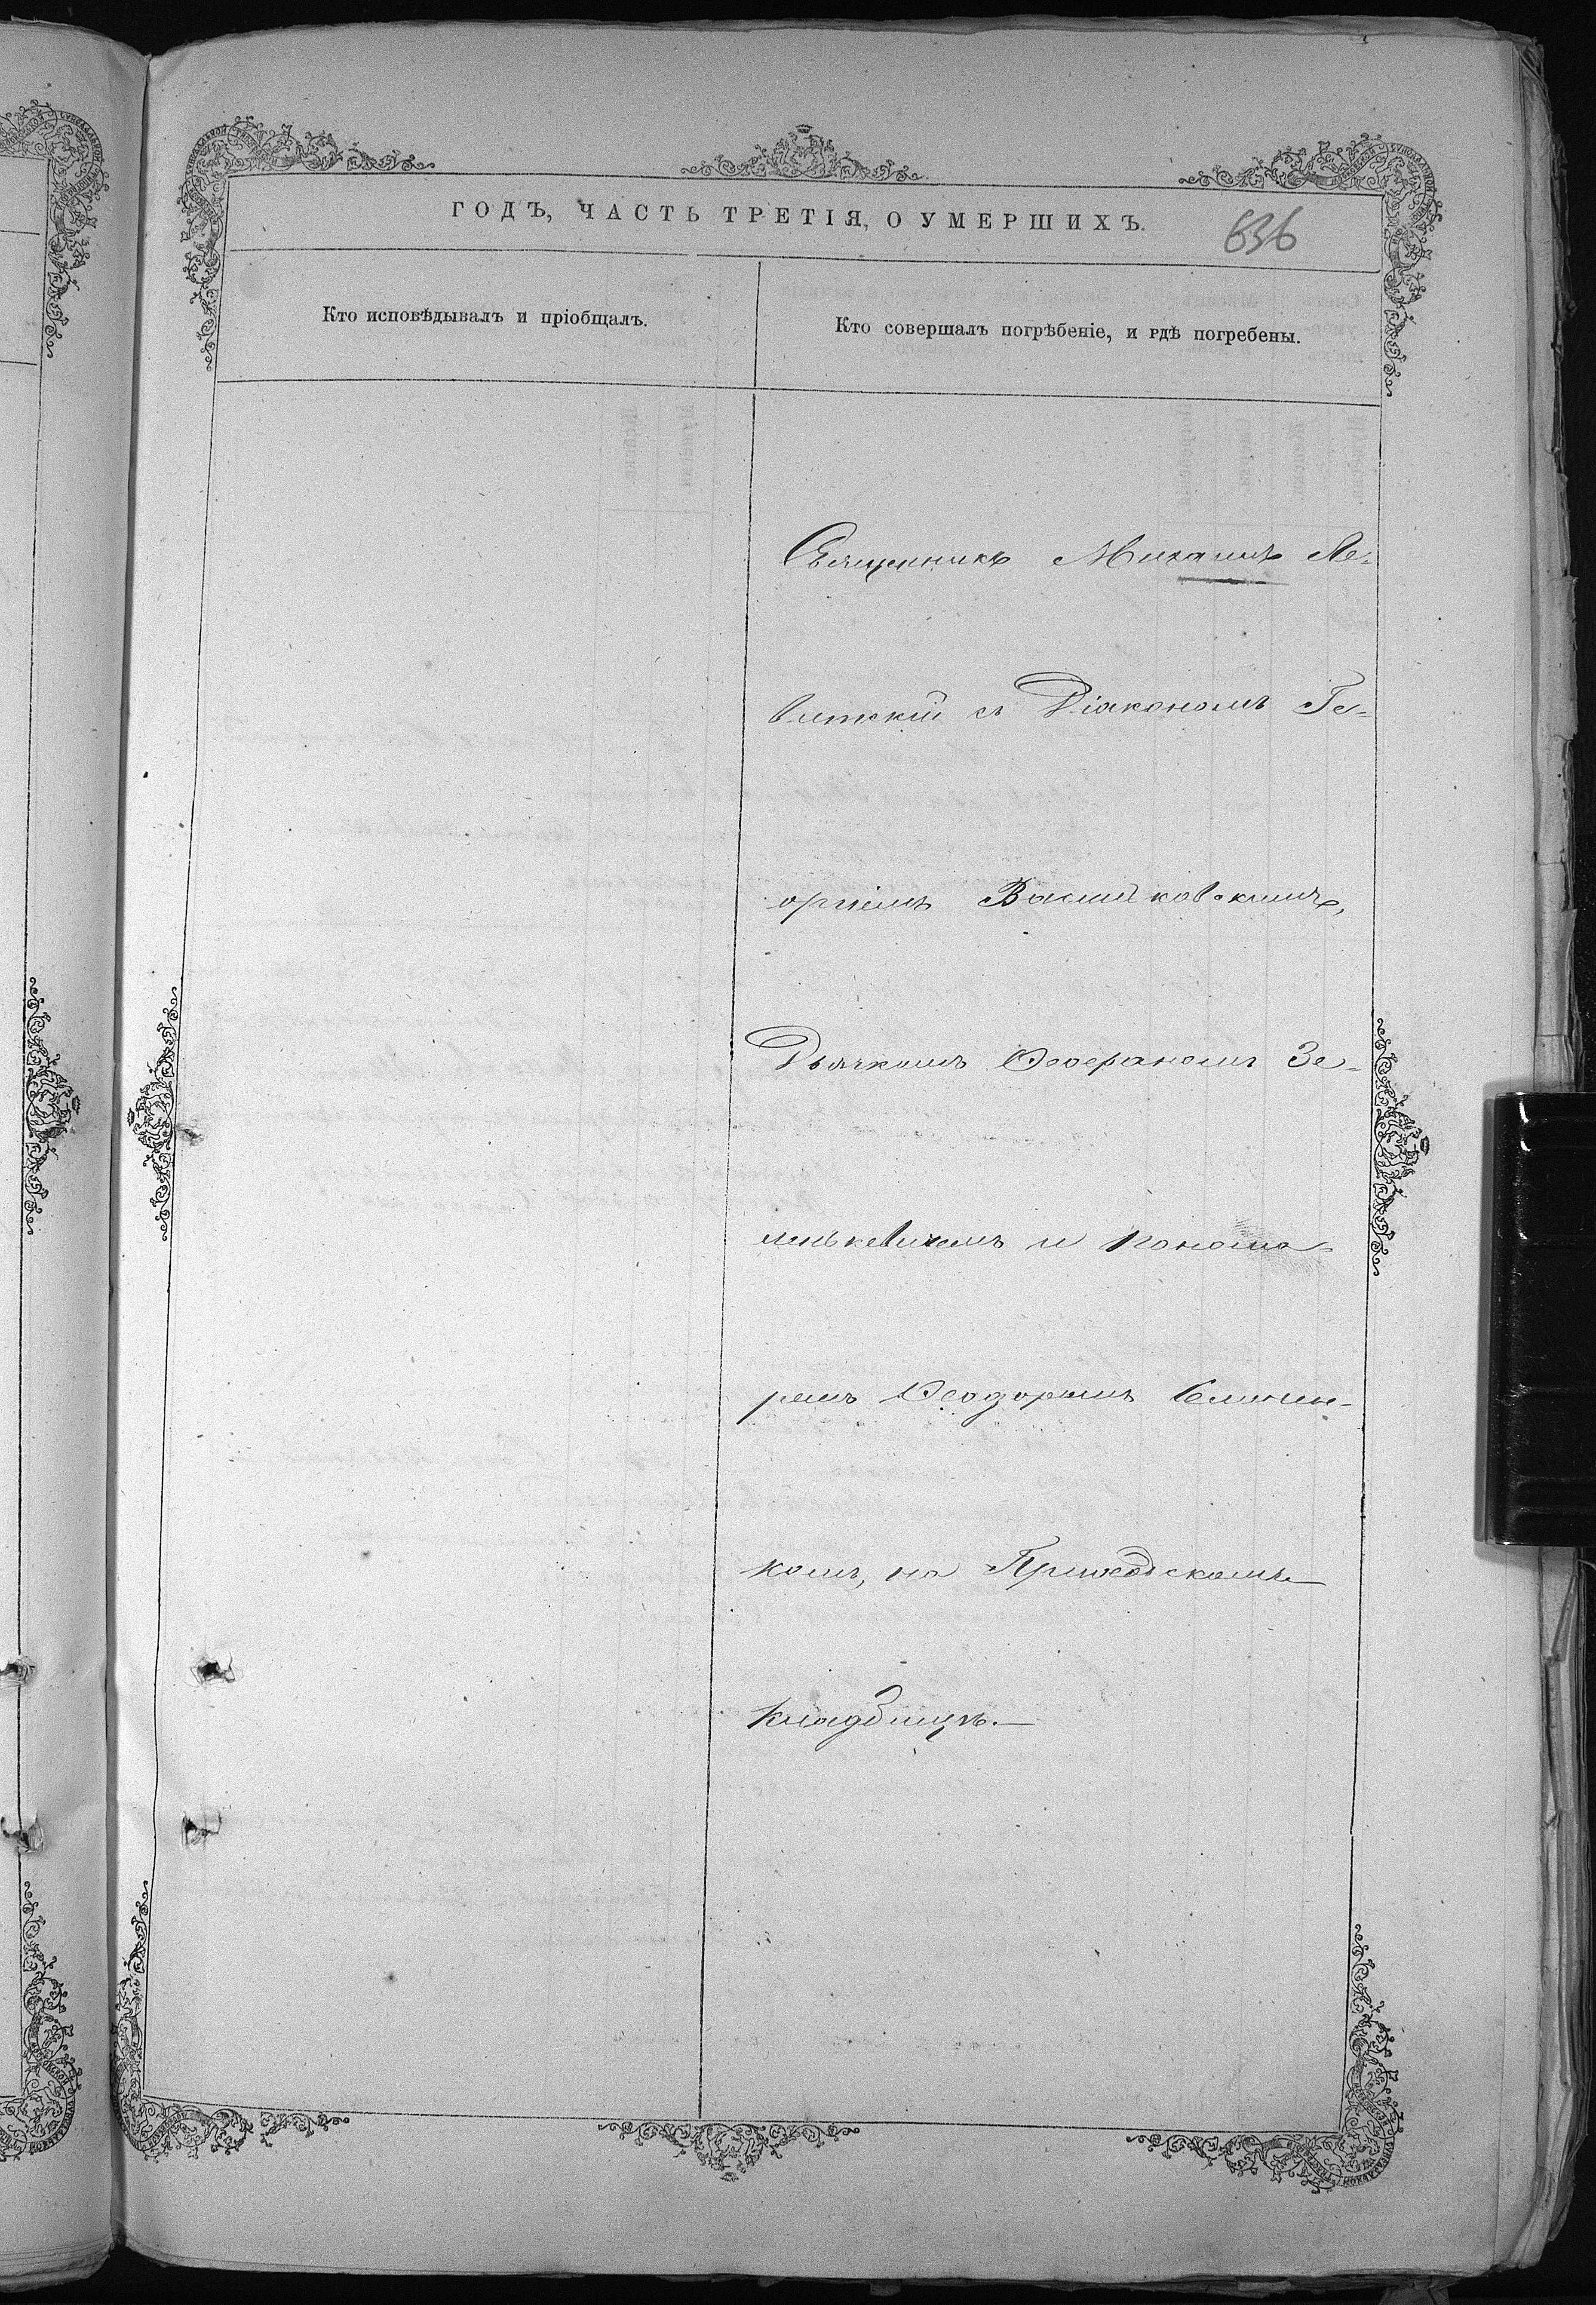 ГОДЪ, ЧАСТЬ ТРЕТІЯ, О УМЕРШИХЪ.
636
Кто исповѣдывалъ и пріобщалъ.
Кто совершалъ погрѣбеніе, и гдѣ погребены.
Священникъ Михаилъ Ле-
витскій съ Діакономъ Ге-
оргіемъ Васильковскимъ,
Дьячкомъ Ѳеофаномъ Зе-
ленькевичемъ и понома-
ремъ Ѳеодоромъ
комъ, на Приходскомъ
кладбищѣ.